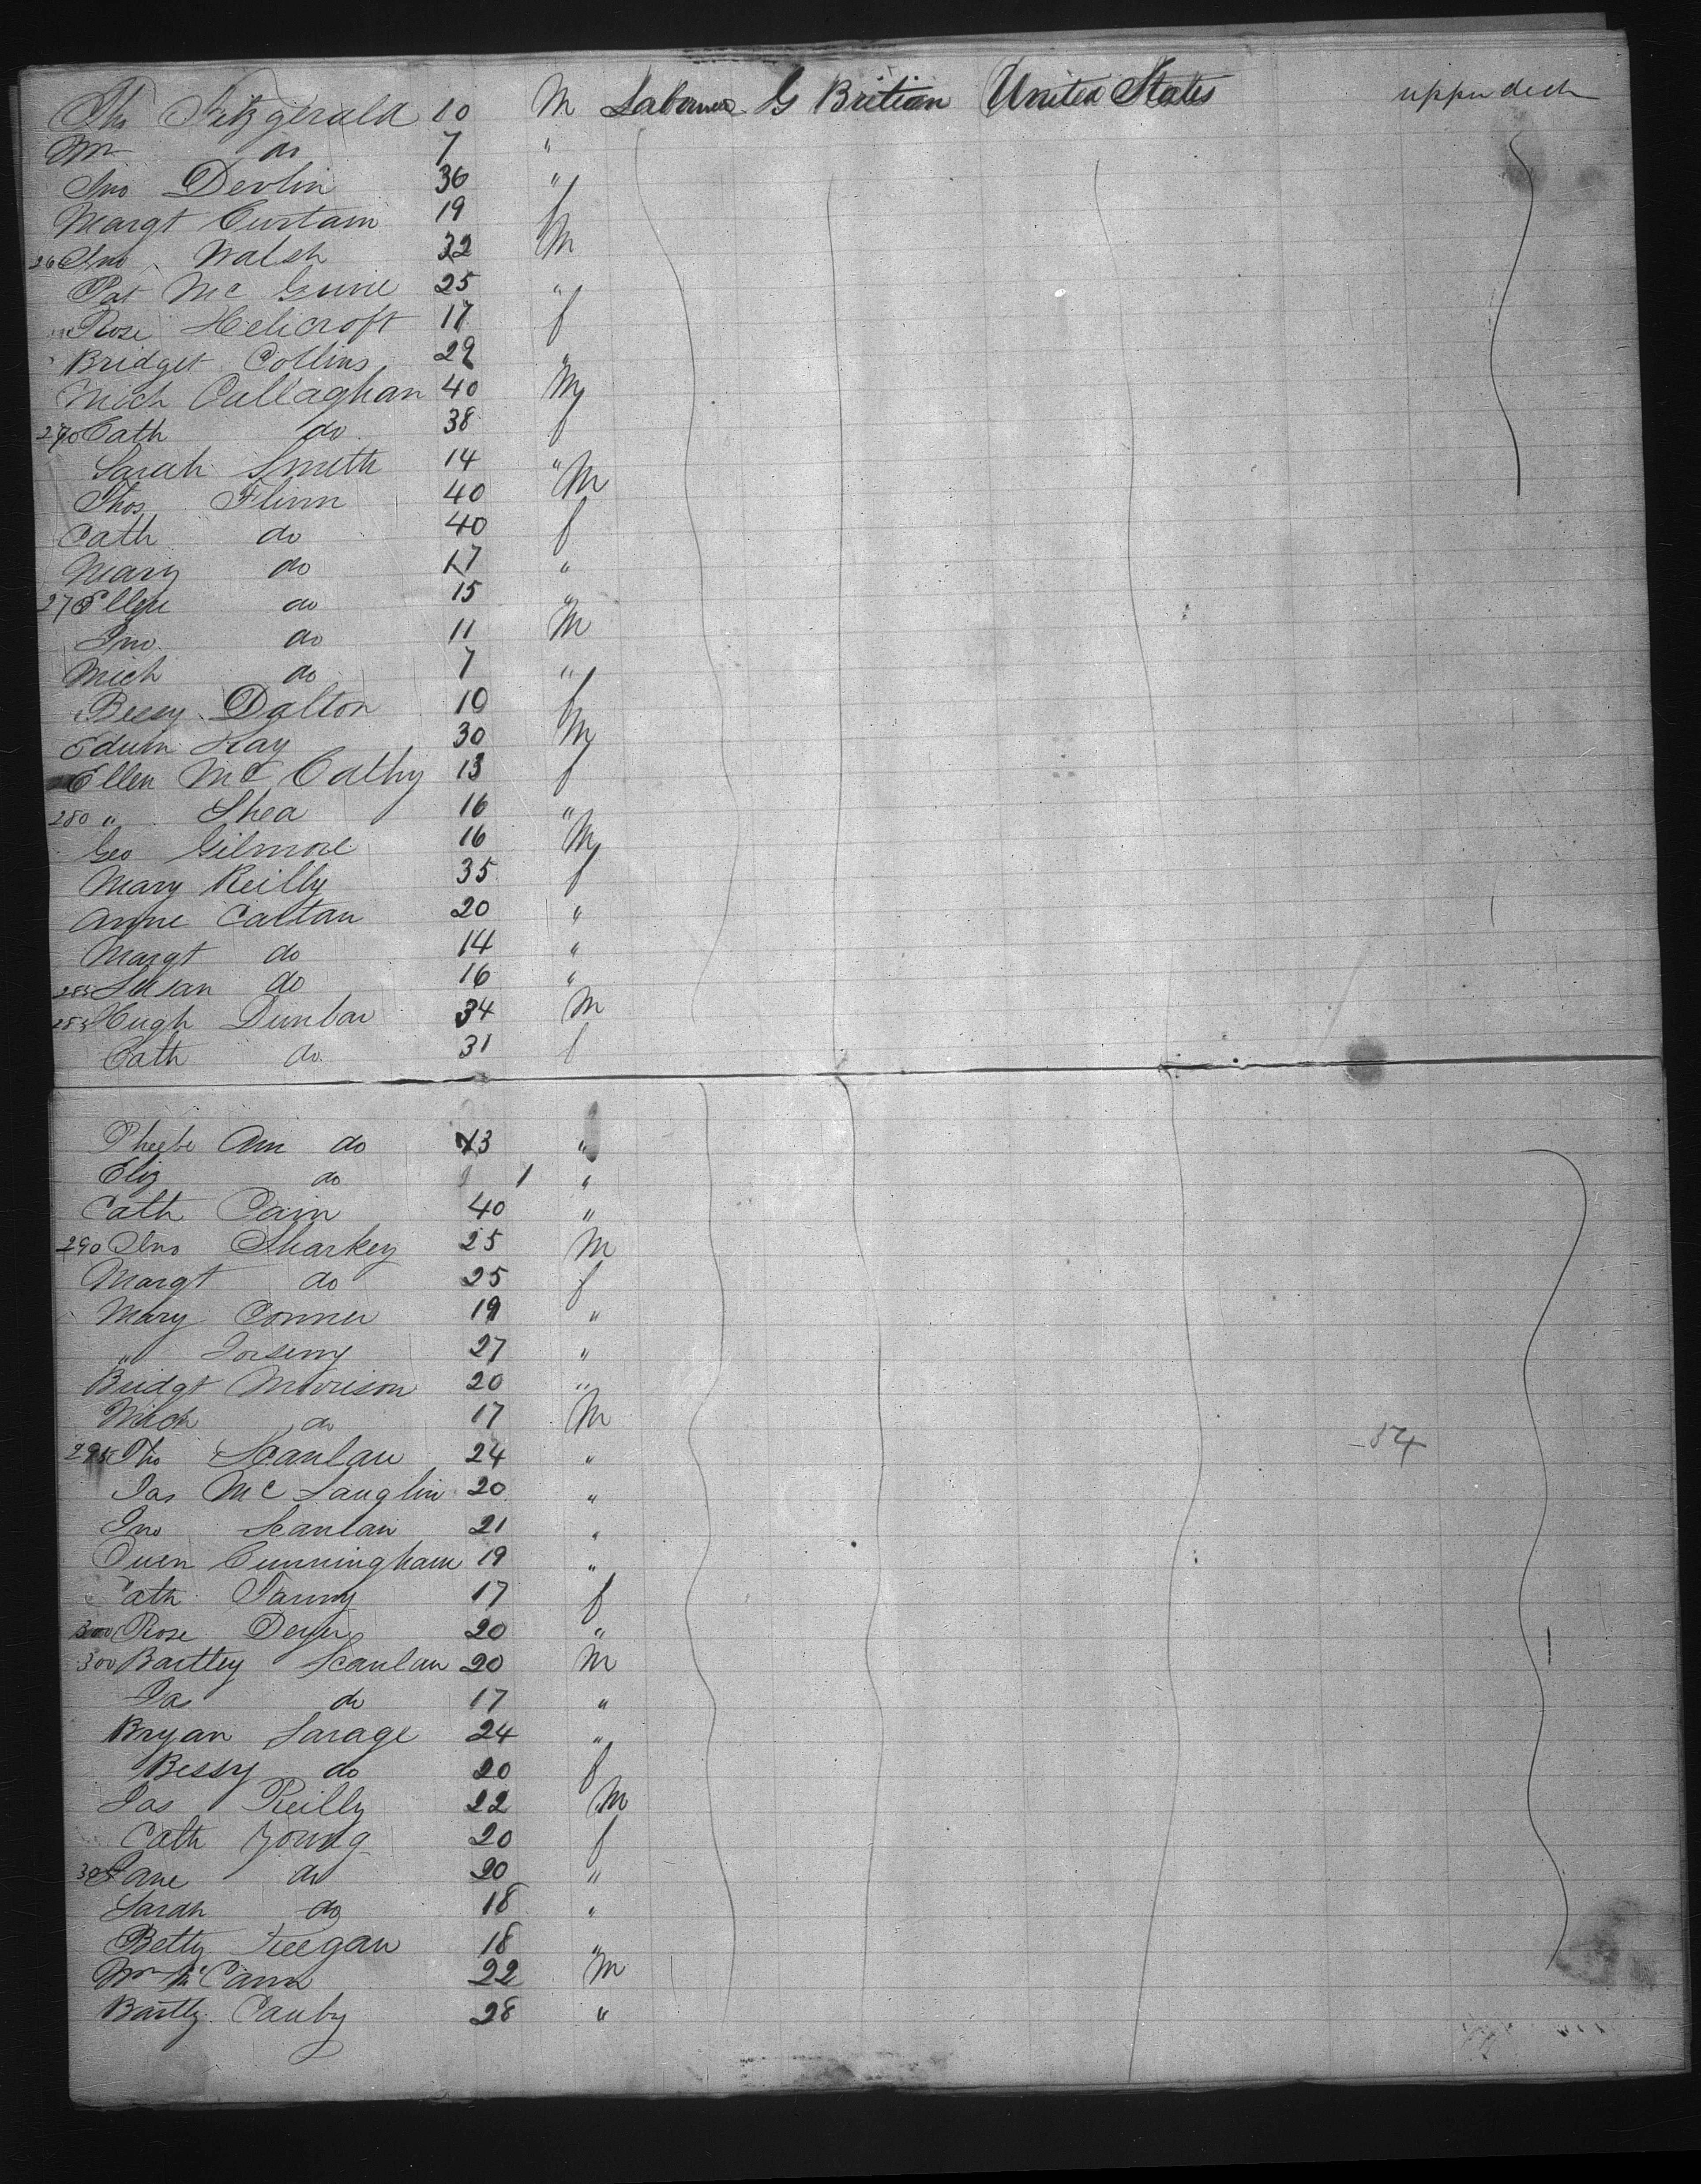 Tho Fitzgerald 10 M Labourer G Britian United States upper deck
Wm do 7 "
Jno Devlin 36 "
Margt Curtain 19 f
26 Jno Walsh 32 M
Pat Mc Guire 25 "
Rose Helicroft 17 f
Bridget Collins 29 "
Mich Callaghan 40 M
270 Cath do 38 f
Sarah Smith 14 "
Thos Flinn 40 M
Cath do 40 f
Mary do 17 "
27 Ellen do 15 "
Jno do 11 M
Mich do 7 "
Bessy Dalton 10 f
Edwin Kay 30 M
Ellen Mc Cathy 13 f
280 " Shea 16 "
Geo Gilmore 16 M
Mary Reilly 35 f
Anne Caltan 20 "
Margt do 14 "
285 Susan do 16 "
285 Hugh Dunbar 34 M
Cath do 31 f
Pheebe Ann do 13 "
Eliz do 1 "
Cath Cain 40 "
290 Jno Sharkey 25 M
Margt do 25 f
Mary Conner 19 "
" 27 "
Bridgt Morrison 20 "
Mich do 17 M
295 Tho Scanlan 24 " 54
Jas Mc Lauglin 20 "
Jno Scanlan 21 "
Owen Cunningham 19 "
Cath 17 f
300 Rose Dwyer 20 "
300 Bartley Scanlan 20 M
Jas do 17 "
Bryan Sarage 24 "
Bessy do 20 f
Jas Reilly 22 M
Cath Young 20 f
305 Jane do 20 "
Sarah do 18 "
Betty Keegan 18 "
Wm Mc Cann 22 M
Bartly Canby 28 "